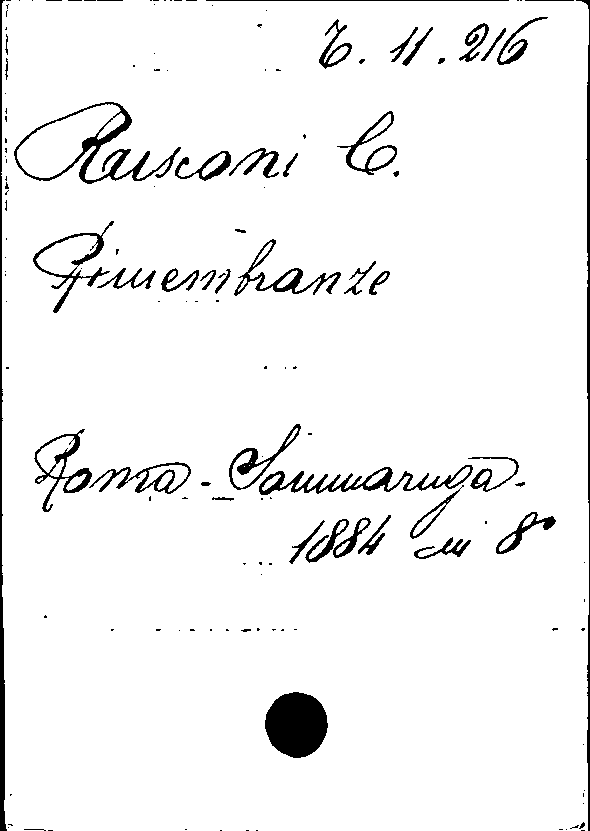 11. 216
Rusconi C.
Rimembranze
Roma - Sommaruga -
1884 in 8°